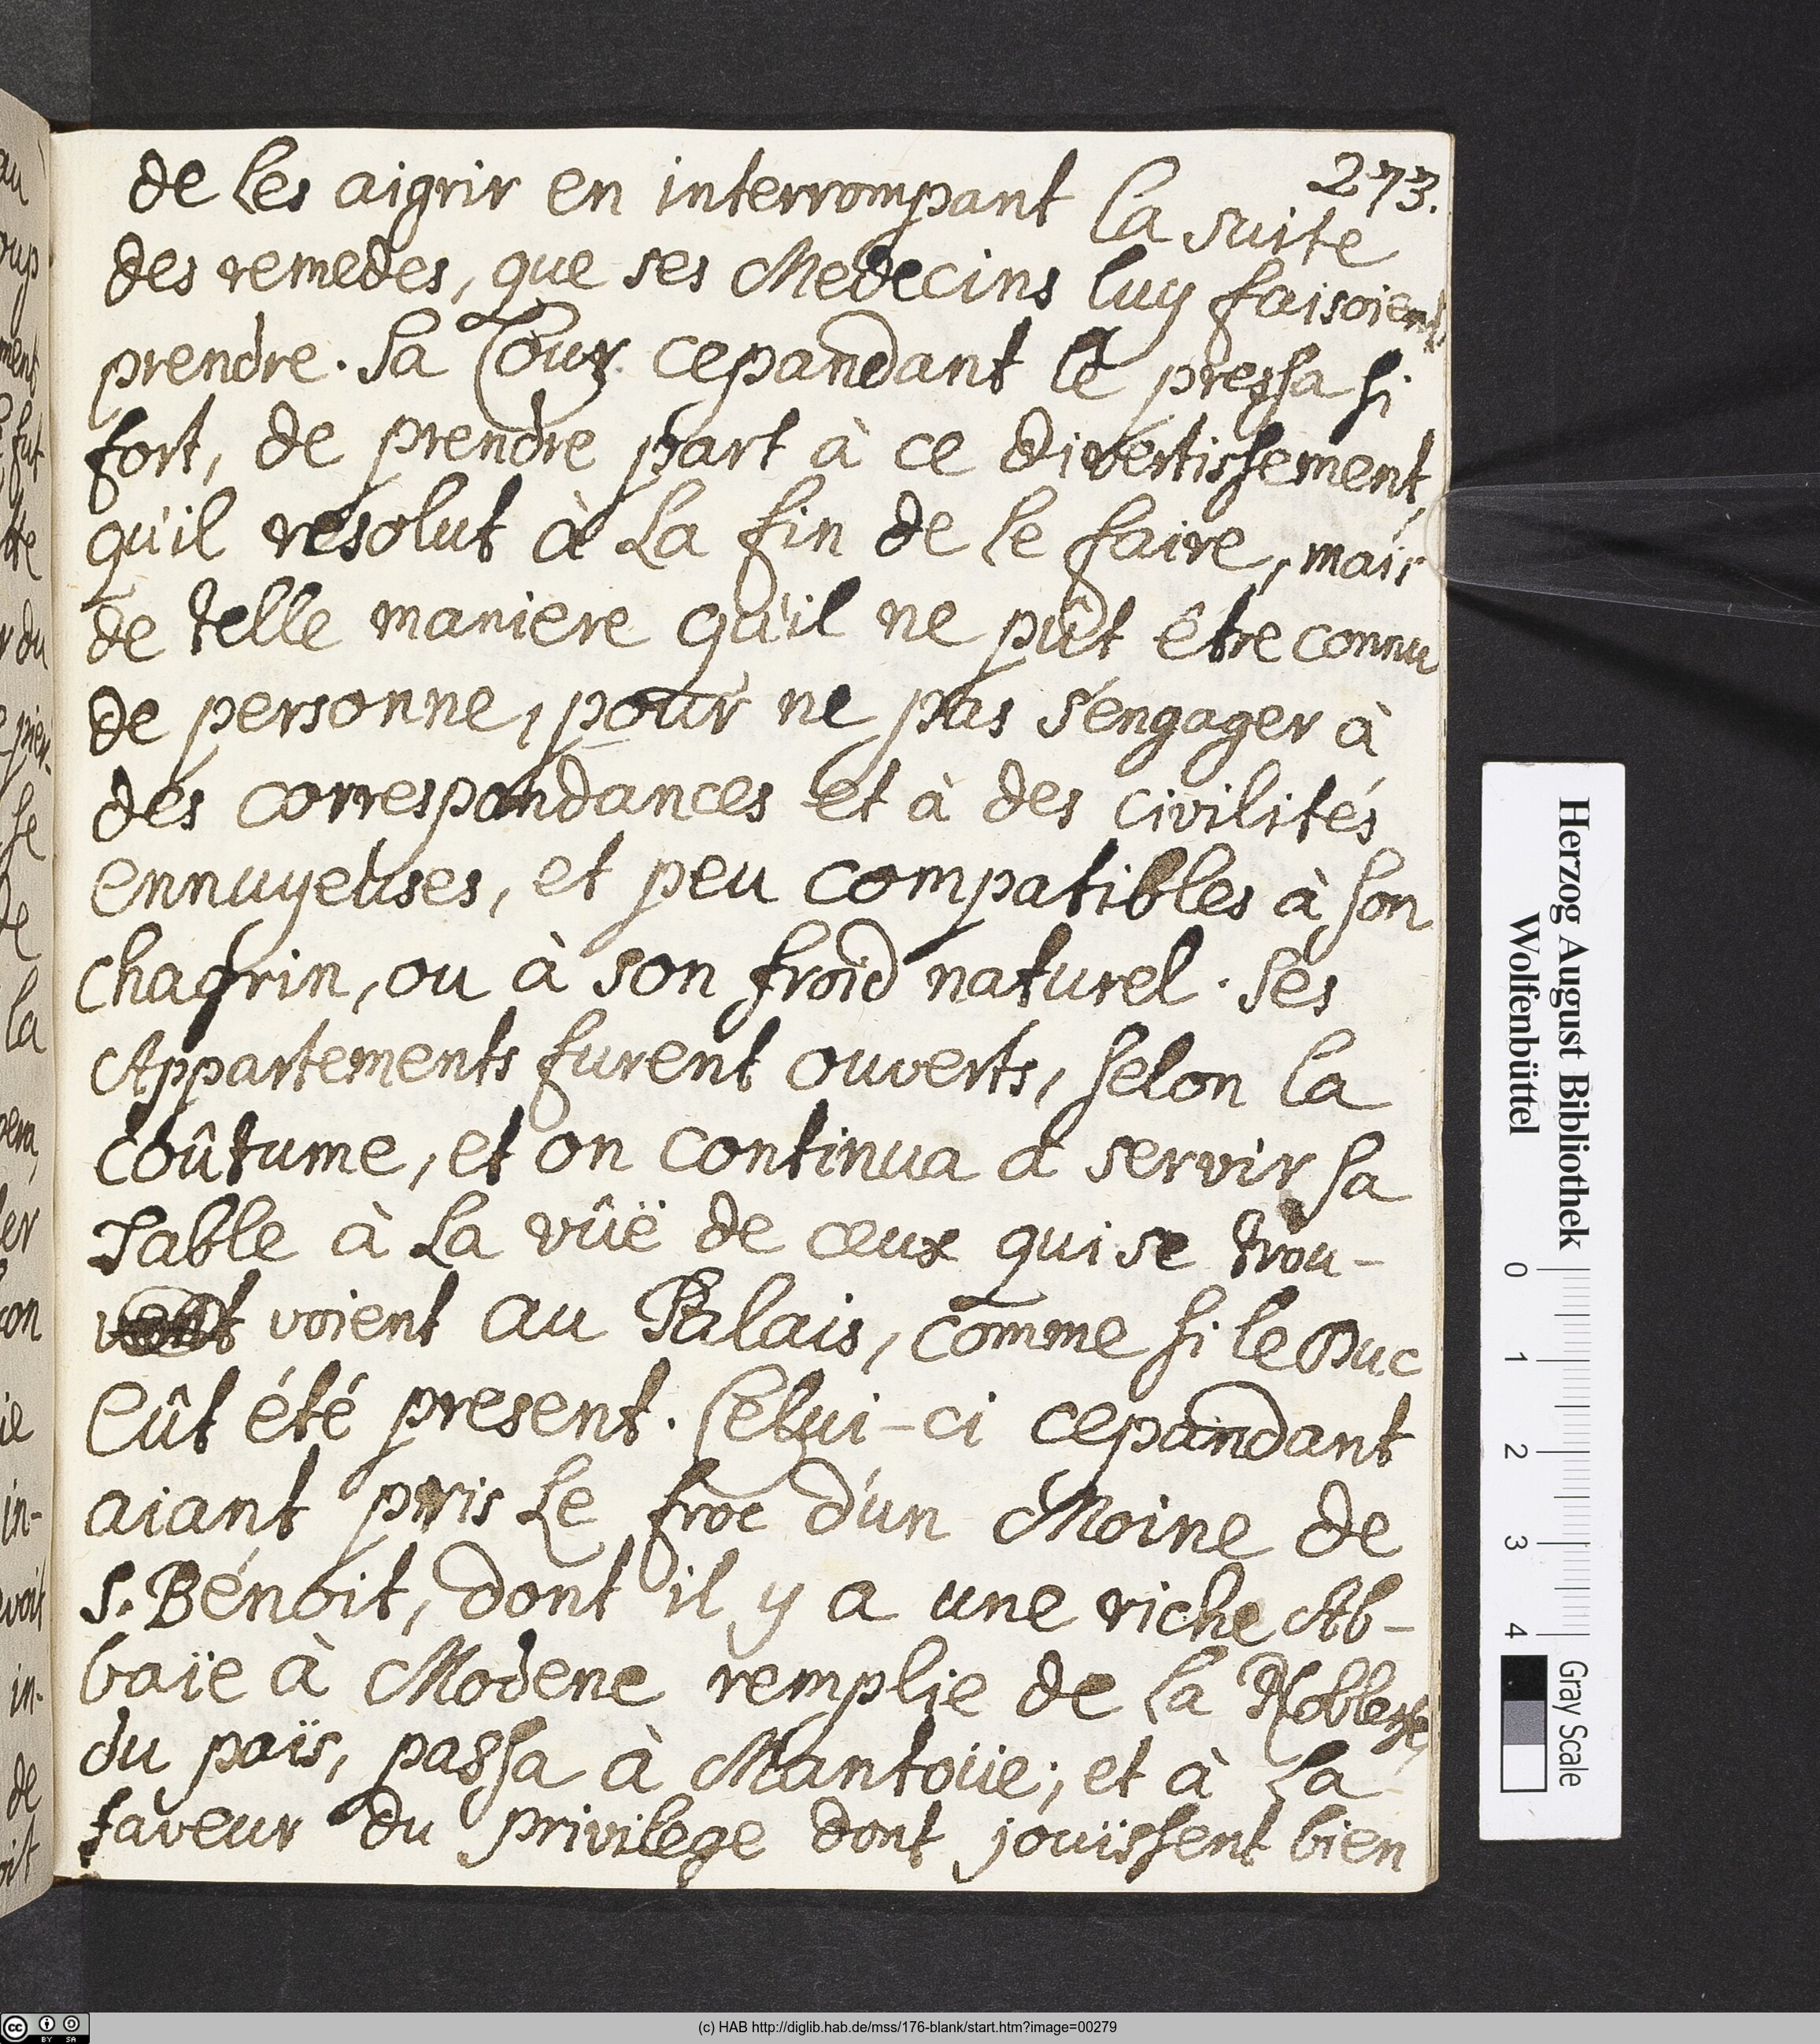 273.
de les aigrir en interrompant la suite
des remedes, que ses Medecins luy faisoient
prendre. Sa Cour cepandant le pressa si
fort, de prendre part à ce divertissement,
qu'il resolut à la fin de le faire, mais
de telle maniere qu'il ne pût être connu
de personne, pour ne pas s'engager à
des correspondances et à des civilités
ennuyeuses, et peu compatibles à son
chagrin, ou à son froid naturel. Ses
Appartements furent ouverts, selon la
coûtume, et on continua a servir sa
Table à la vûë de ceux qui se trou-
voient au Palais, comme si le Duc
eût été present. Celui-ci cepandant
aiant pris le froc d'un Moine de
S. Bénoit, dont il y a une riche Ab-
baïe à Modene remplie de la Noblesse
du païs, passa à Mantoüe; et à la
faveur du privilege dont jouïssent bien
Herzog August Bibliothek
Wolfenbüttel
0 1 2 3 4
Gray Scale
(c) HAB http://diglib.hab.de/mss/176-blank/start.htm?image=00279